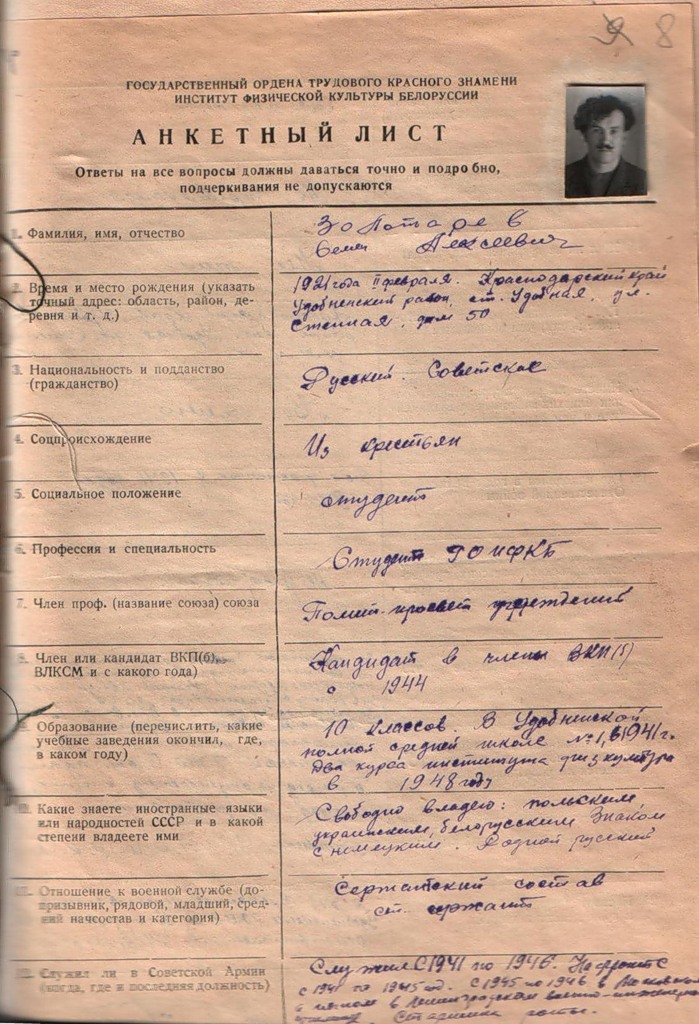 8
ГОСУДАРСТВЕННЫЙ ОРДЕНА ТРУДОВОГО КРАСНОГО ЗНАМЕНИ
ИНСТИТУТ ФИЗИЧЕСКОЙ КУЛЬТУРЫ БЕЛОРУССИИ
АНКЕТНЫЙ ЛИСТ
Ответы на все вопросы должны даваться точно и подробно,
подчеркивания не допускаются
1. Фамилия, имя, отчество
Золотарев
Семен Алексеевич
2. Время и место рождения (указать
точный адрес: область, район, де-
ревня и т. д.)
1921 года II февраля. Краснодарский край
Удобненский район, ст. Удобная, ул.
дом 50
3. Национальность и подданство
(гражданство)
Русский. Советское
4. Соцпроисхождение
Из крестьян
5. Социальное положение
студент
6. Профессия и специальность
Студент ГОИФКБ
7. Член проф. (название союза) союза
Полит-просвет учреждений
8. Член или кандидат ВКП(б),
ВЛКСМ и с какого года)
Кандидат в члены ВКП(б)
с 1944
9. Образование (перечислить, какие
учебные заведения окончил, где,
в каком году)
10 классов В Удобненской
полной средней школе №1, в 1941 г.
Два курса института физкультуры
в 1948 году
10. Какие знаете иностранные языки
или народностей СССР и в какой
степени владеете ими
Свободно владею: польским,
украинским, белорусским Знаком
с немецким. Родной русский
11. Отношение к военной службе (до-
призывник, рядовой, младший, сред-
ний начсостав и категория)
Сержантский состав
ст. сержант
12. Служил ли в Советской Армии
(когда, где и последняя должность)
Служил с 1941 по 1946. На фронте
с 1941 по 1945 год. с 1945 по 1946 в Московском
и потом в Ленинградском военно-инженерном
Старшина роты.